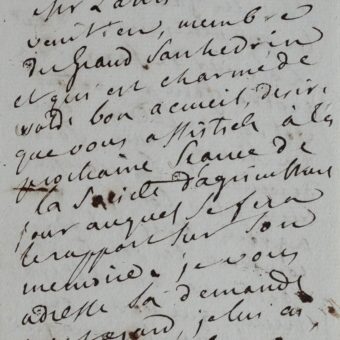 Mr
vénitien, membre
du Grand Sanhedrin
et qui est charmé de
votre bon accueil, desire
que vous assistiez à la
prochaine seance de
la Société d'agriculture
jour auquel se fera
le rapport sur son
memoire. je vous
adresse sa demande
je lui ai